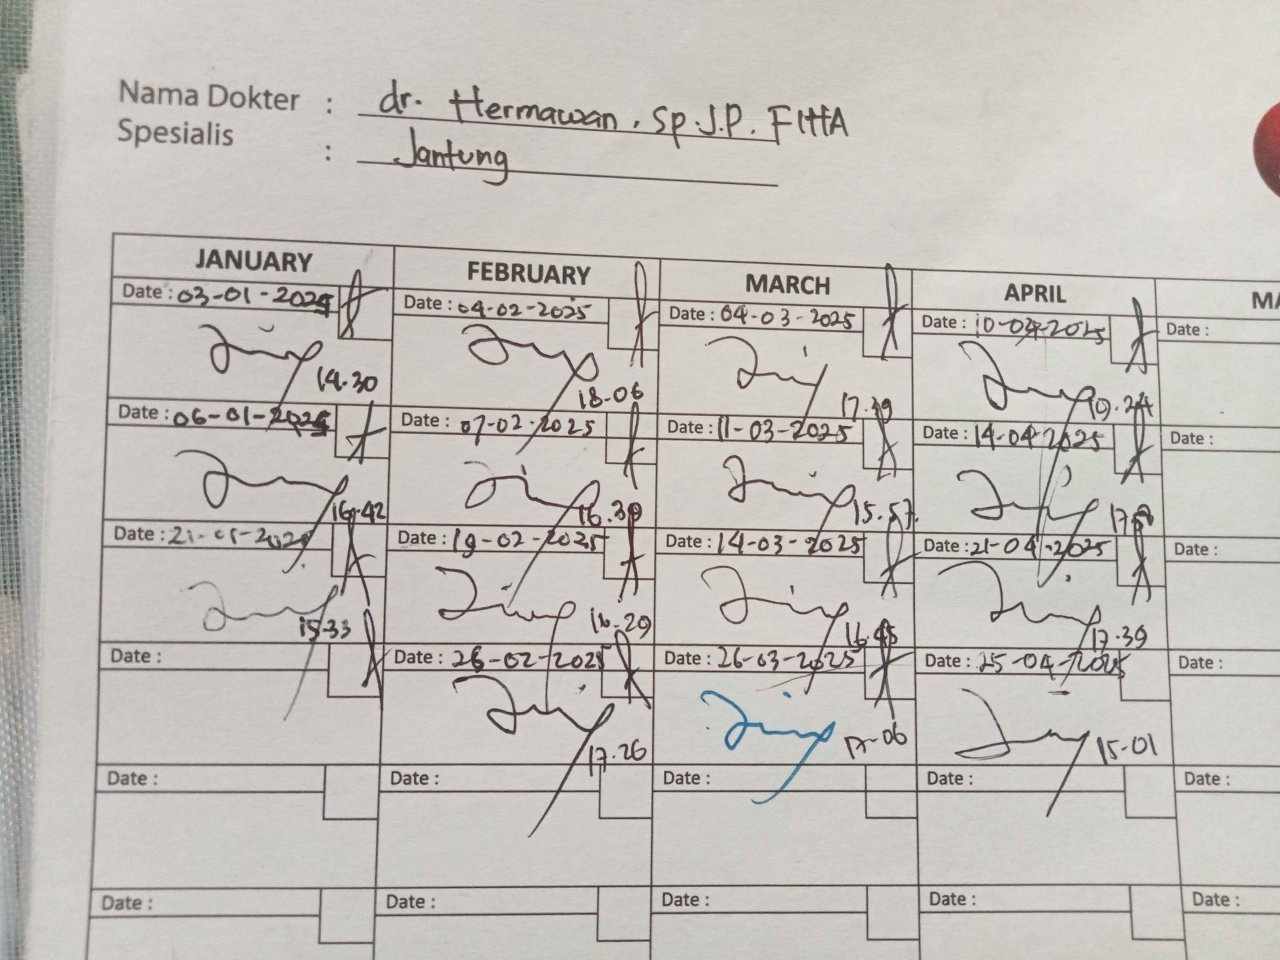 Nama Dokter : dr. Hermawan, Sp.J.P. FIHA
Spesialis : Jantung
JANUARY FEBRUARY MARCH APRIL
Date : 03-01-2025 Date : 04-02-2025 Date : 04-03-2025 Date : 10-04-2025 Date :
14.30 18.06 17.39
Date : 06-01-2025 Date : 07-02-2025 Date : 11-03-2025 Date : 14-04-2025 Date :
16.42 16.30 15.57
Date : 21-01-2025 Date : 19-02-2025 Date : 14-03-2025 Date : 21-04-2025 Date :
15.33 16.29 16.45 17.39
Date : Date : 26-02-2025 Date : 26-03-2025 Date : 25-04-2025 Date :
17.26 17-06 15-01
Date : Date : Date : Date : Date :
Date : Date : Date : Date : Date :